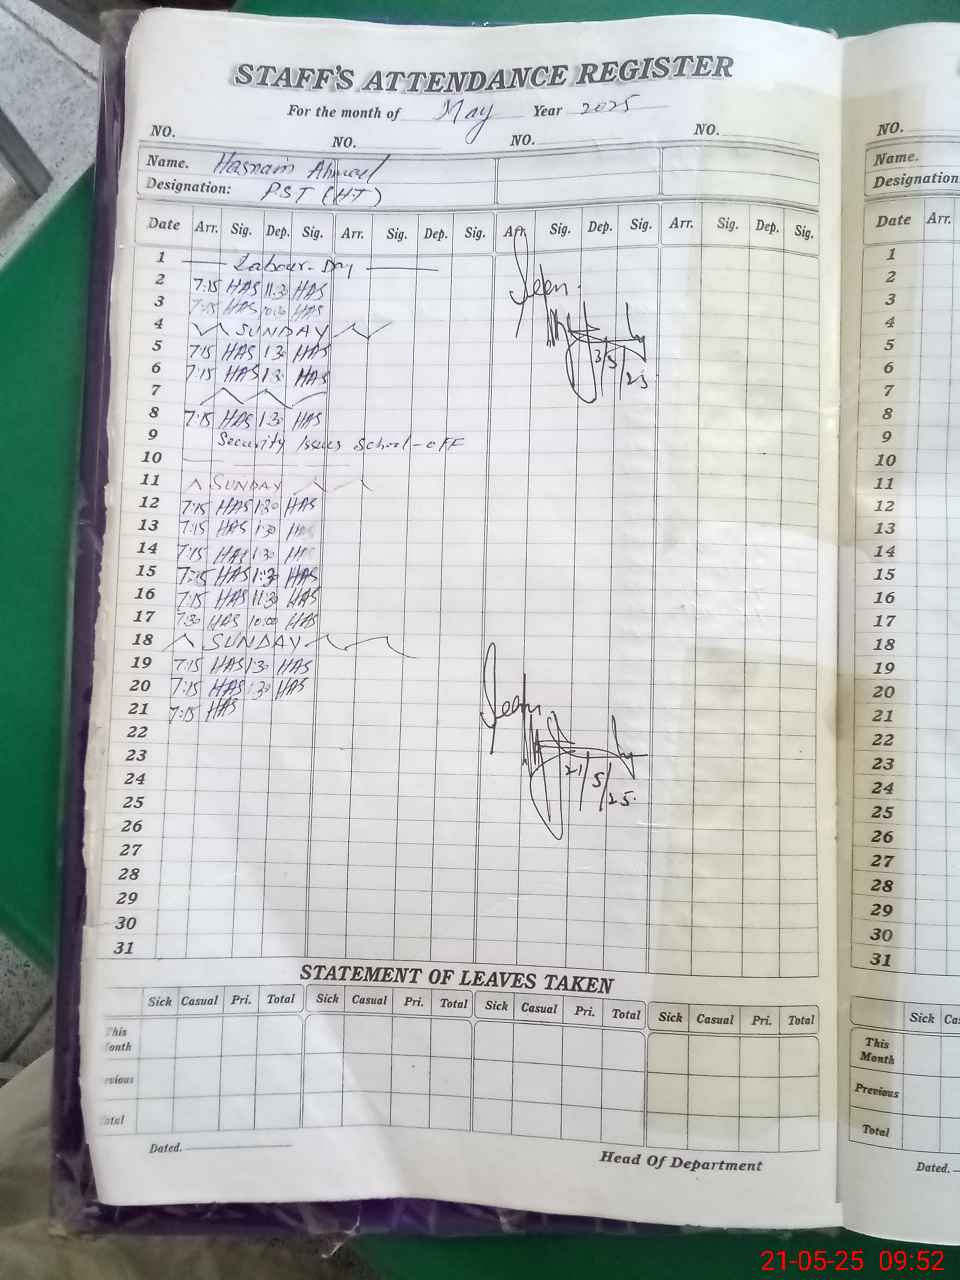 STAFF'S ATTENDANCE REGISTER
For the month of May Year 2025
NO. NO. NO. NO.
Name. Hasnain Ahmed
Designation: P.S.T (H.T)
Date Arr. Sig. Dep. Sig. Arr. Sig. Dep. Sig. Arr. Sig. Dep. Sig. Arr. Sig. Dep. Sig.
1 Labour-Day
2 7:15 HAS 11:30 HAS
3 7:15 HAS 10:00 HAS
4 SUNDAY
5 7:15 HAS 1:30 HAS
6 7:15 HAS 1:30 HAS
7
8 7:15 HAS 1:30 HAS
9 Security Issues School-off
10
11 SUNDAY
12 7:15 HAS 1:30 HAS
13 7:15 HAS 1:30 HAS
14 7:15 HAS 1:30 HAS
15 7:15 HAS 1:30 HAS
16 7:15 HAS 11:30 HAS
17 7:30 HAS 10:00 HAS
18 SUNDAY
19 7:15 HAS 1:30 HAS
20 7:15 HAS 1:30 HAS
21 7:15 HAS
22
23
24
25
26
27
28
29
30
31
Seen
Seen
21/5/25.
STATEMENT OF LEAVES TAKEN
Sick Casual Pri. Total Sick Casual Pri. Total Sick Casual Pri. Total Sick Casual Pri. Total
This Month
evious
Total
Dated.
Head Of Department
NO.
Name.
Designation
Date Arr.
1
2
3
4
5
6
7
8
9
10
11
12
13
14
15
16
17
18
19
20
21
22
23
24
25
26
27
28
29
30
31
Sick Ca
This Month
Previous
Total
Dated.
21-05-25 09:52